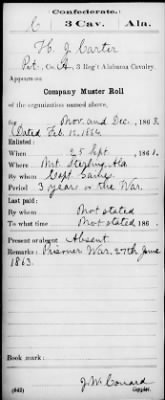 Confederate.
C 3 Cav. Ala.
H. J. Carter
Pvt, Co. A, 3 Reg't Alabama Cavalry.
Appears on
Company Muster Roll
of the organization named above,
for Nov. and Dec., 1863.
Dated Feb. 12, 1864
Enlisted:
When 25 Sept, 186
Where Mt. Sterling, Ala
By whom Capt. Gaines
Period 3 years or the War.
Last paid:
By whom Not stated
To what time Not stated 186 .
Present or absent Absent
Remarks: Prisoner War, 27th June
1863.
Book mark:
(642)
J. W. Conard
Copyist.